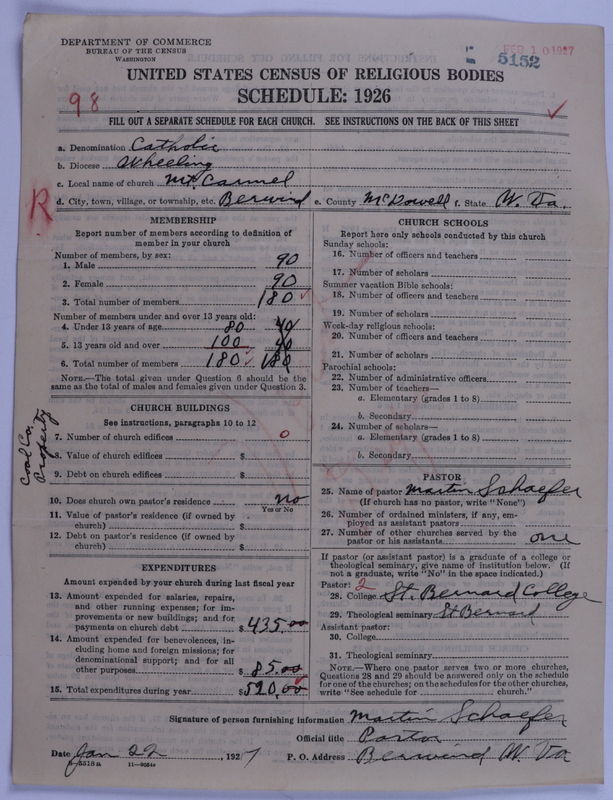 DEPARTMENT OF COMMERCE
BUREAU OF THE CENSUS
WASHINGTON
FEB 10 1927
5152
UNITED STATES CENSUS OF RELIGIOUS BODIES
98
SCHEDULE: 1926
FILL OUT A SEPARATE SCHEDULE FOR EACH CHURCH. SEE INSTRUCTIONS ON THE BACK OF THIS SHEET
a. Denomination Catholic
b. Diocese Wheeling
c. Local name of church Mt. Carmel
R
d. City, town, village, or township, etc. Berwind e. County McDowell f. State W. Va.
MEMBERSHIP
Report number of members according to definition of
member in your church
Number of members, by sex:
1. Male 90
2. Female 90
3. Total number of members 180
Number of members under and over 13 years old:
4. Under 13 years of age 80
5. 13 years old and over 100
6. Total number of members 180 180
NOTE.—The total given under Question 6 should be the
same as the total of males and females given under Question 3.
CHURCH BUILDINGS
See instructions, paragraphs 10 to 12
7. Number of church edifices 0
8. Value of church edifices $
9. Debt on church edifices $
Coal Co. Property
10. Does church own pastor's residence no
Yes or No
11. Value of pastor's residence (if owned by
church) $
12. Debt on pastor's residence (if owned by
church) $
EXPENDITURES
Amount expended by your church during last fiscal year
13. Amount expended for salaries, repairs,
and other running expenses; for im-
provements or new buildings; and for
payments on church debt $ 435.00
14. Amount expended for benevolences, in-
cluding home and foreign missions; for
denominational support; and for all
other purposes $ 85.00
15. Total expenditures during year $ 520.00
CHURCH SCHOOLS
Report here only schools conducted by this church
Sunday schools:
16. Number of officers and teachers
17. Number of scholars
Summer vacation Bible schools:
18. Number of officers and teachers
19. Number of scholars
Week-day religious schools:
20. Number of officers and teachers
21. Number of scholars
Parochial schools:
22. Number of administrative officers
23. Number of teachers—
a. Elementary (grades 1 to 8)
b. Secondary
24. Number of scholars—
a. Elementary (grades 1 to 8)
b. Secondary
PASTOR
25. Name of pastor Martin Schaefer
(If church has no pastor, write "None")
26. Number of ordained ministers, if any, em-
ployed as assistant pastors
27. Number of other churches served by the
pastor or his assistants one
If pastor (or assistant pastor) is a graduate of a college or
theological seminary, give name of institution below. (If
not a graduate, write "No" in the space indicated.)
Pastor: 2
28. College St. Bernard College
29. Theological seminary St Bernard
Assistant pastor:
30. College
31. Theological seminary
NOTE.—Where one pastor serves two or more churches,
Questions 28 and 29 should be answered only on the schedule
for one of the churches; on the schedules for the other churches,
write "See schedule for church."
Signature of person furnishing information Martin Schaefer
Official title Pastor
Date Jan 22, 1927 P. O. Address Berwind W. Va
8-5518a 11-9024a